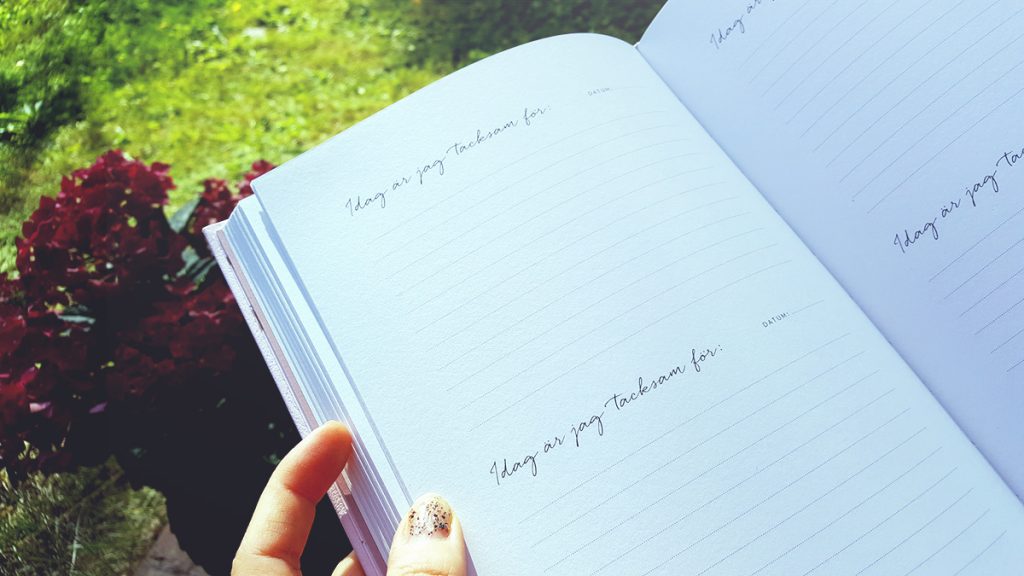 DATUM:
Idag är jag tacksam för:
DATUM:
Idag är jag tacksam för:
Idag är
Idag är jag